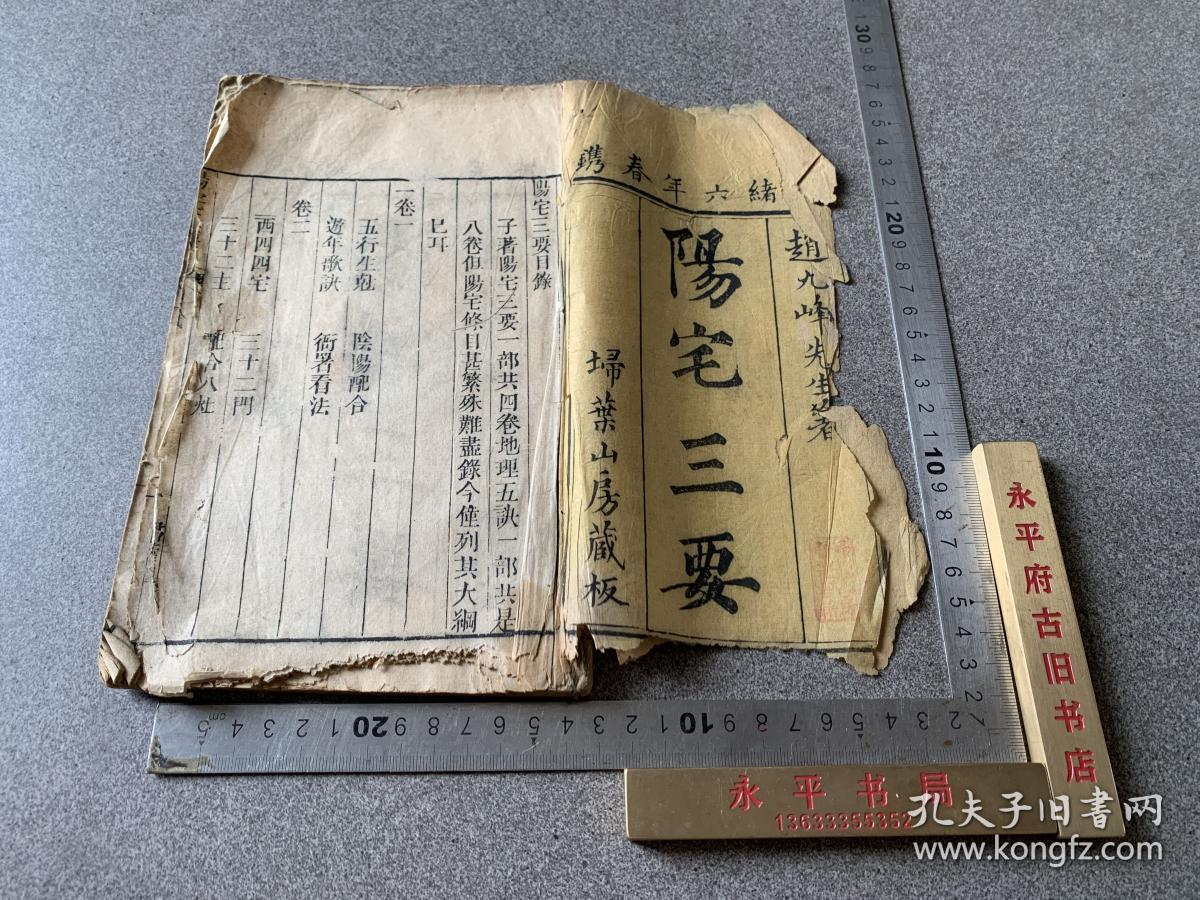 緒六年春鐫
趙九峰先生著
陽宅三要
埽葉山房藏板
陽宅三要目錄
子著陽宅三要一部共四卷地理五訣一部共是
八卷但陽宅條目甚繁殊難盡錄今僅列其大綱
巳耳
卷一
五行生尅 陰陽配合
遊年歌訣 衙署看法
卷二
西四四宅 三十二門
三十二主 配合八灶
永平府古旧书店
永平书局
13633355352
孔夫子旧书网
www.kongfz.com
30 9 8 7 6 5 4 3 2 1 20 9 8 7 6 5 4 3 2 1 10 9 8 7 6 5 4 3 2
5 cm 4 3 2 1 20 9 8 7 6 5 4 3 2 1 10 9 8 7 6 5 4 3 2 1